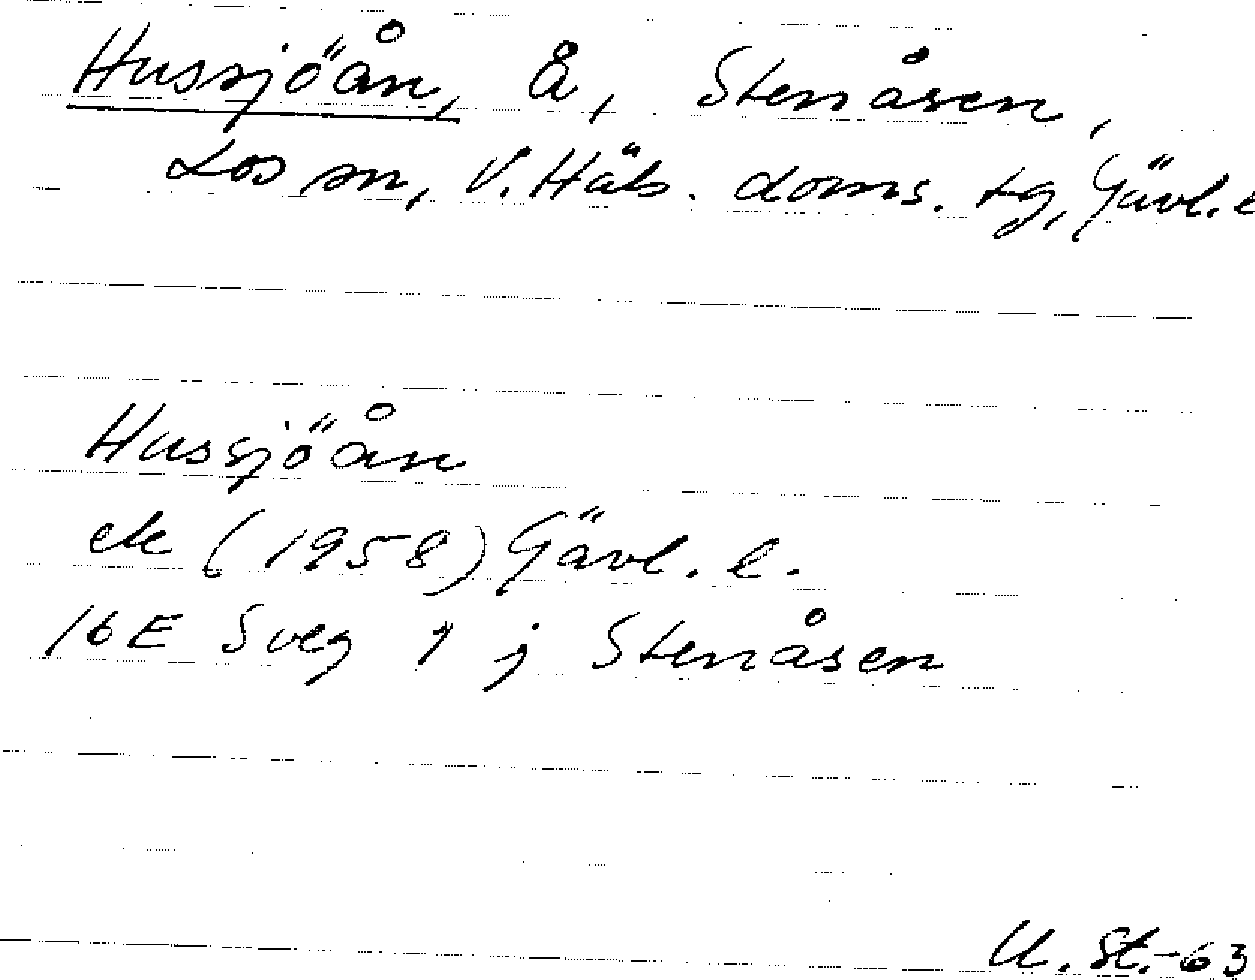 Hussjöån, å, Stenåsen,
Los sn, V. Häls. doms. tg, Gävl. l
Hussjöån
ek (1958) Gävl. l.
16E Sveg 1 j Stenåsen
U. St.-63